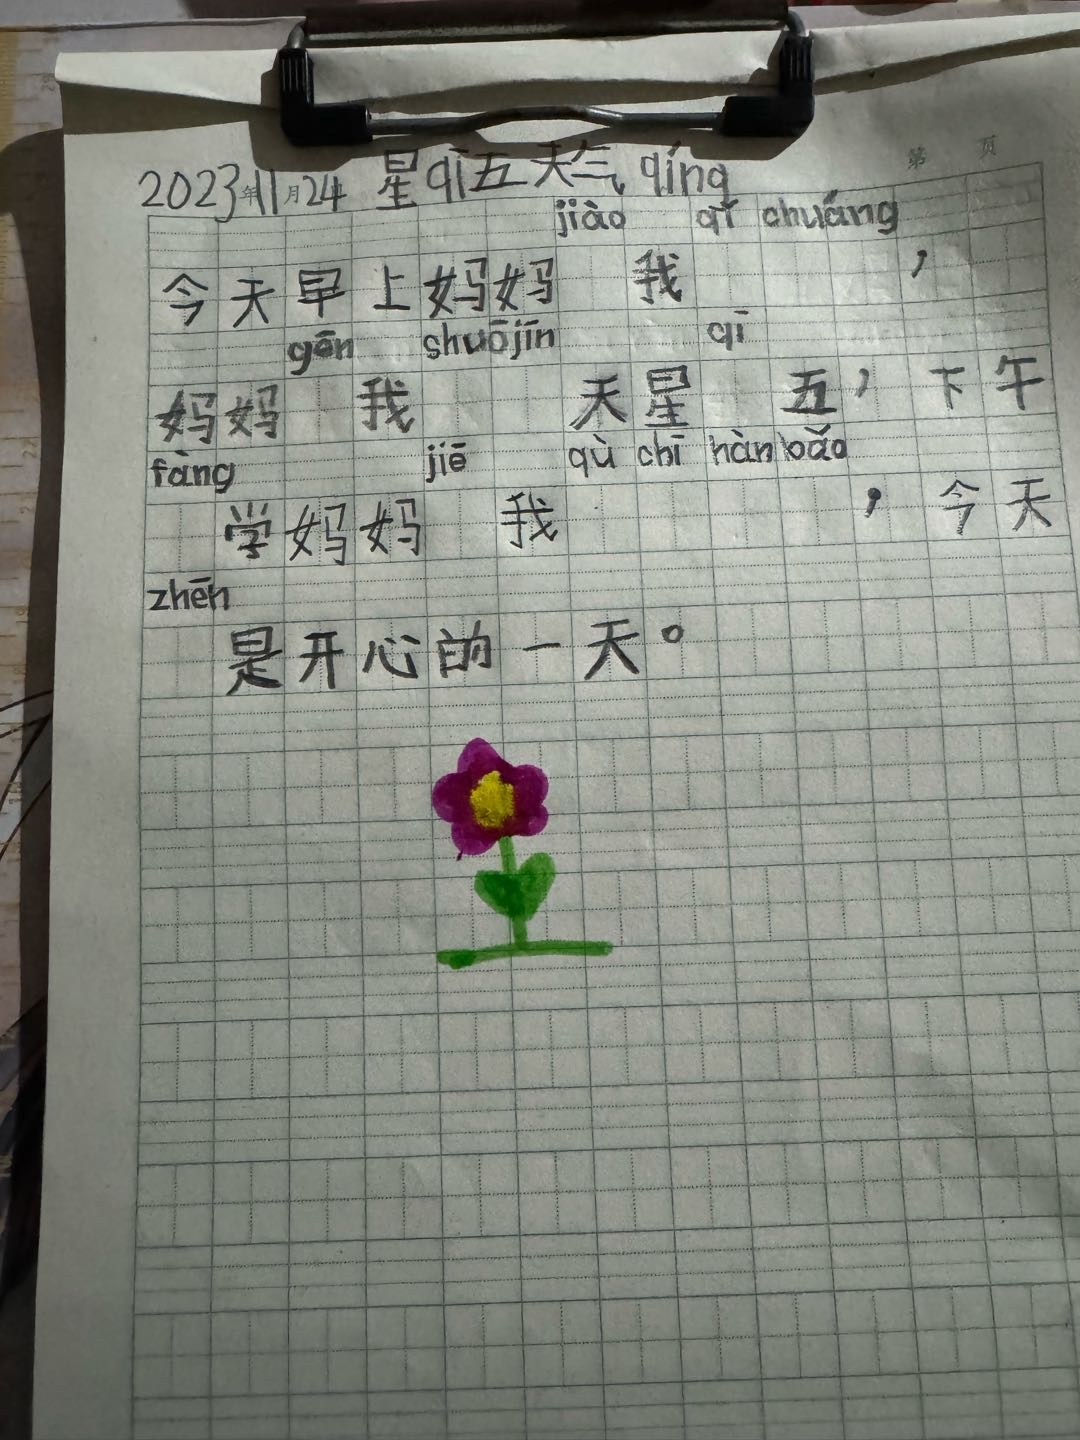 第 页
2023年11月24 星qī五天气 qíng
jiào qǐ chuáng
今天早上妈妈 我 ，
gēn shuōjīn qī
妈妈 我 天星 五，下午
fàng jiē qù chī hàn bǎo
学妈妈 我 ，今天
zhēn
是开心的一天。